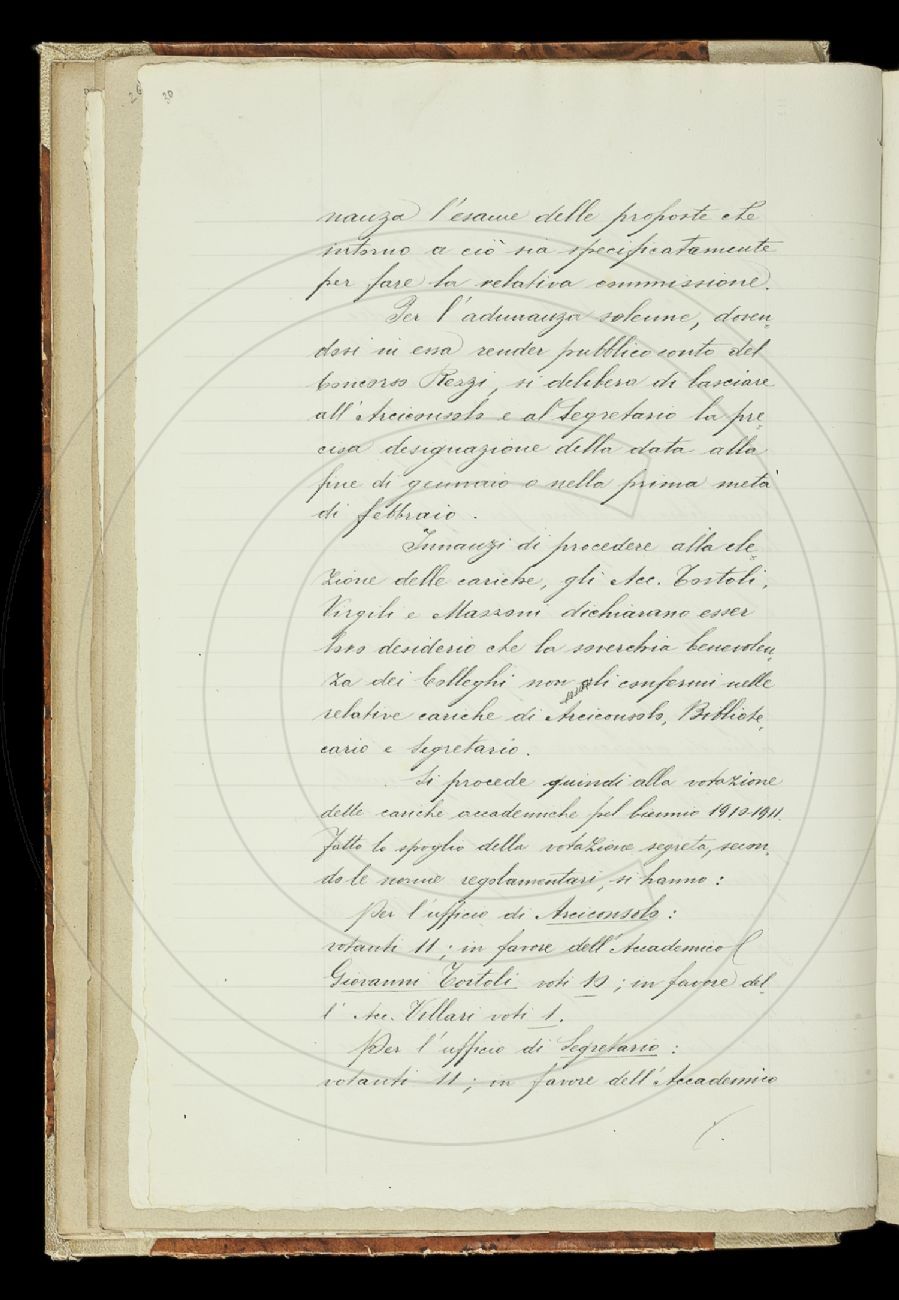 26 30
nanza l'esame delle proposte che
intorno a ciò sia specificatamente
per fare la relativa commissione.
Per l'adunanza solenne, doven-
dosi in essa render pubblico conto del
Concorso Rezzi, si delibera di lasciare
all'Arciconsolo e al Segretario la pre-
cisa designazione della data alla
fine di gennaio o nella prima metà
di febbraio.
Innanzi di procedere alla ele-
zione delle cariche, gli Acc. Tortoli,
Virgili e Mazzoni dichiarano esser
loro desiderio che la soverchia benevolen-
za dei Colleghi non gli confermi nelle
relative cariche di Arciconsolo, Bibliote-
cario e Segretario.
Si procede quindi alla votazione
delle cariche accademiche pel biennio 1910-1911.
Fatto lo spoglio della votazione segreta, secon-
do le norme regolamentari, si hanno:
Per l'ufficio di Arciconsolo:
votanti 11; in favore dell'Accademico
Giovanni Tortoli voti 10; in favore del-
l'Acc. Villari voti 1.
Per l'ufficio di Segretario:
votanti 11; in favore dell'Accademico